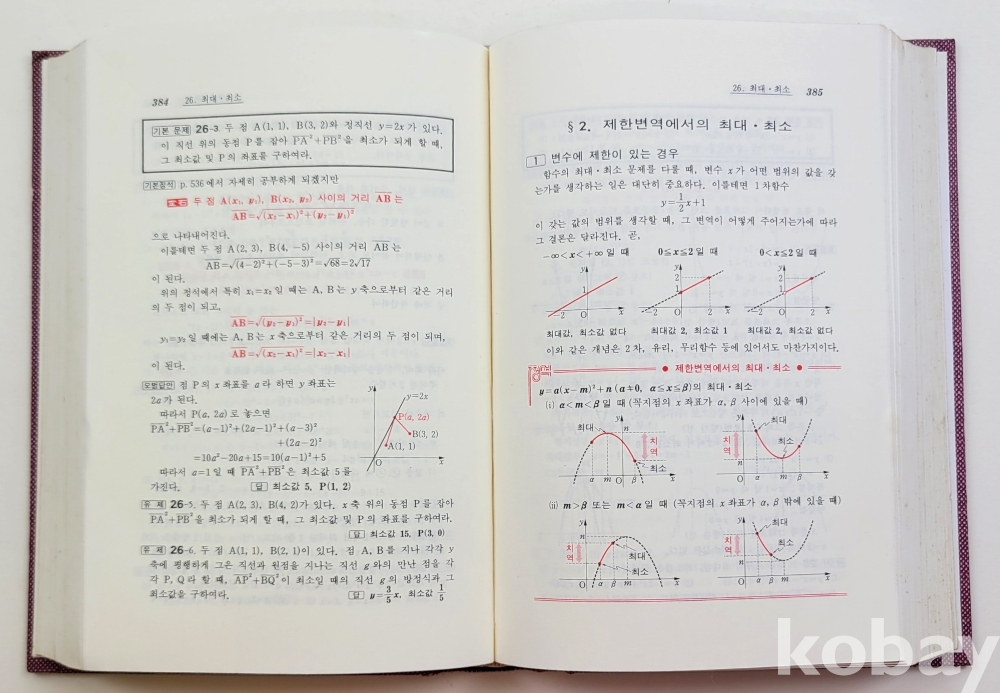 384 26. 최대·최소
기본 문제 26-3. 두 점 A(1, 1), B(3, 2)와 정직선 y=2x 가 있다.
이 직선 위의 동점 P를 잡아 PA²+PB²을 최소가 되게 할 때,
그 최소값 및 P의 좌표를 구하여라.
기본정석 p. 536에서 자세히 공부하게 되겠지만
두 점 A(x₁, y₁), B(x₂, y₂) 사이의 거리 AB는
AB=√(x₂−x₁)²+(y₂−y₁)²
으로 나타내어진다.
이를테면 두 점 A(2, 3), B(4, −5) 사이의 거리 AB는
AB=√(4−2)²+(−5−3)²=√68=2√17
이 된다.
위의 정석에서 특히 x₁=x₂일 때는 A, B는 y축으로부터 같은 거리
의 두 점이 되고,
AB=√(y₂−y₁)²=|y₂−y₁|
y₁=y₂일 때에는 A, B는 x축으로부터 같은 거리의 두 점이 되며,
AB=√(x₂−x₁)²=|x₂−x₁|
이 된다.
모범답안 점 P의 x좌표를 a라 하면 y좌표는
2a가 된다.
따라서 P(a, 2a)로 놓으면
PA²+PB²=(a−1)²+(2a−1)²+(a−3)²
+(2a−2)²
=10a²−20a+15=10(a−1)²+5
따라서 a=1일 때 PA²+PB²은 최소값 5를
가진다. 답 최소값 5, P(1, 2)
y
y=2x
P(a, 2a)
B(3, 2)
A(1, 1)
O
x
유제 26-5. 두 점 A(2, 3), B(4, 2)가 있다. x축 위의 동점 P를 잡아
PA²+PB²을 최소가 되게 할 때, 그 최소값 및 P의 좌표를 구하여라.
답 최소값 15, P(3, 0)
유제 26-6. 두 점 A(1, 1), B(2, 1)이 있다. 점 A, B를 지나 각각 y
축에 평행하게 그은 직선과 원점을 지나는 직선 g와의 만난 점을 각
각 P, Q라 할 때, AP²+BQ²이 최소일 때의 직선 g의 방정식과 그
최소값을 구하여라. 답 y=3/5x, 최소값 1/5
26. 최대·최소 385
§2. 제한변역에서의 최대·최소
1 변수에 제한이 있는 경우
함수의 최대·최소 문제를 다룰 때, 변수 x가 어떤 범위의 값을 갖
는가를 생각하는 일은 대단히 중요하다. 이를테면 1차함수
y=1/2x+1
이 갖는 값의 범위를 생각할 때, 그 변역이 어떻게 주어지는가에 따라
그 결론은 달라진다. 곧,
−∞<x<+∞일 때 0≤x≤2일 때 0<x≤2일 때
y 1 −2 O x
y 2 1 −2 O 2 x
y 2 1 −2 O 2 x
최대값, 최소값 없다 최대값 2, 최소값 1 최대값 2, 최소값 없다
이와 같은 개념은 2차, 유리, 무리함수 등에 있어서도 마찬가지이다.
● 제한변역에서의 최대·최소 ●
y=a(x−m)²+n (a≠0, α≤x≤β)의 최대·최소
(i) α<m<β일 때 (꼭지점의 x좌표가 α, β 사이에 있을 때)
y 최대 n 치역 최소 O α m β x
y 최대 치역 최소 n O α m β x
(ii) m>β 또는 m<α일 때 (꼭지점의 x좌표가 α, β 밖에 있을 때)
y n 최대 치역 최소 O α β m x
y 최대 치역 최소 n O α β m x
kobay